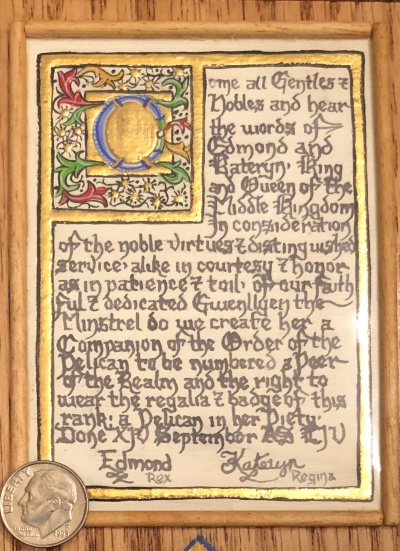 Come all Gentles &
Nobles and hear
the words of
Edmond and
Kateryn, King
and Queen of the
Middle Kingdom
In consideration
of the noble virtues & distinguished
service, alike in courtesy & honor
as in patience & toil, of our faith
ful & dedicated Gwenllyen the
Minstrel do we create her a
Companion of the Order of the
Pelican to be numbered a Peer
of the Realm and the right to
wear the regalia & badge of this
rank; a Pelican in her Piety.
Done XIV September AS LIV
Edmond Kateryn
Rex Regina
LIBERTY